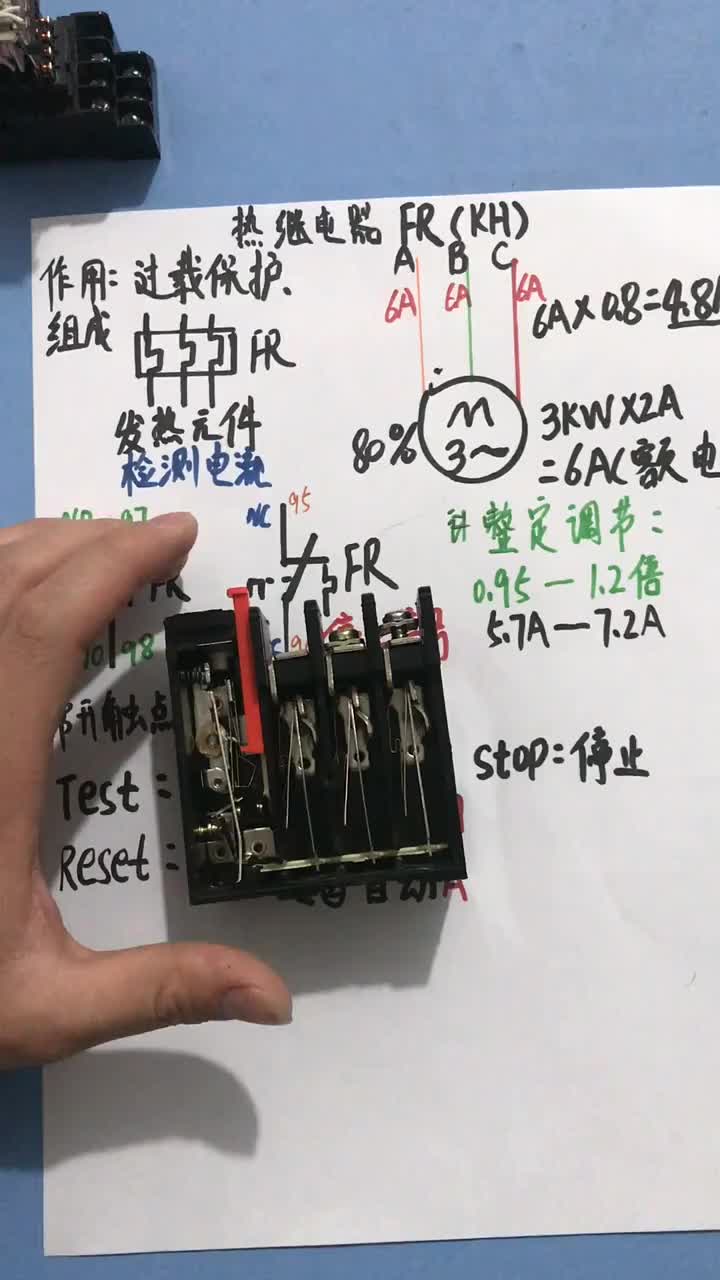 热继电器 FR(KH)
作用: 过载保护.
组成
FR
发热元件
检测电流
A B C
6A 6A 6A
6A×0.8=4.8
80%
M
3~
3KW×2A
=6A(额 电
整定调节:
0.95—1.2倍
5.7A—7.2A
NC 95
FR
97
FR
98
触点
Test:
Reset:
自动A
Stop:停止